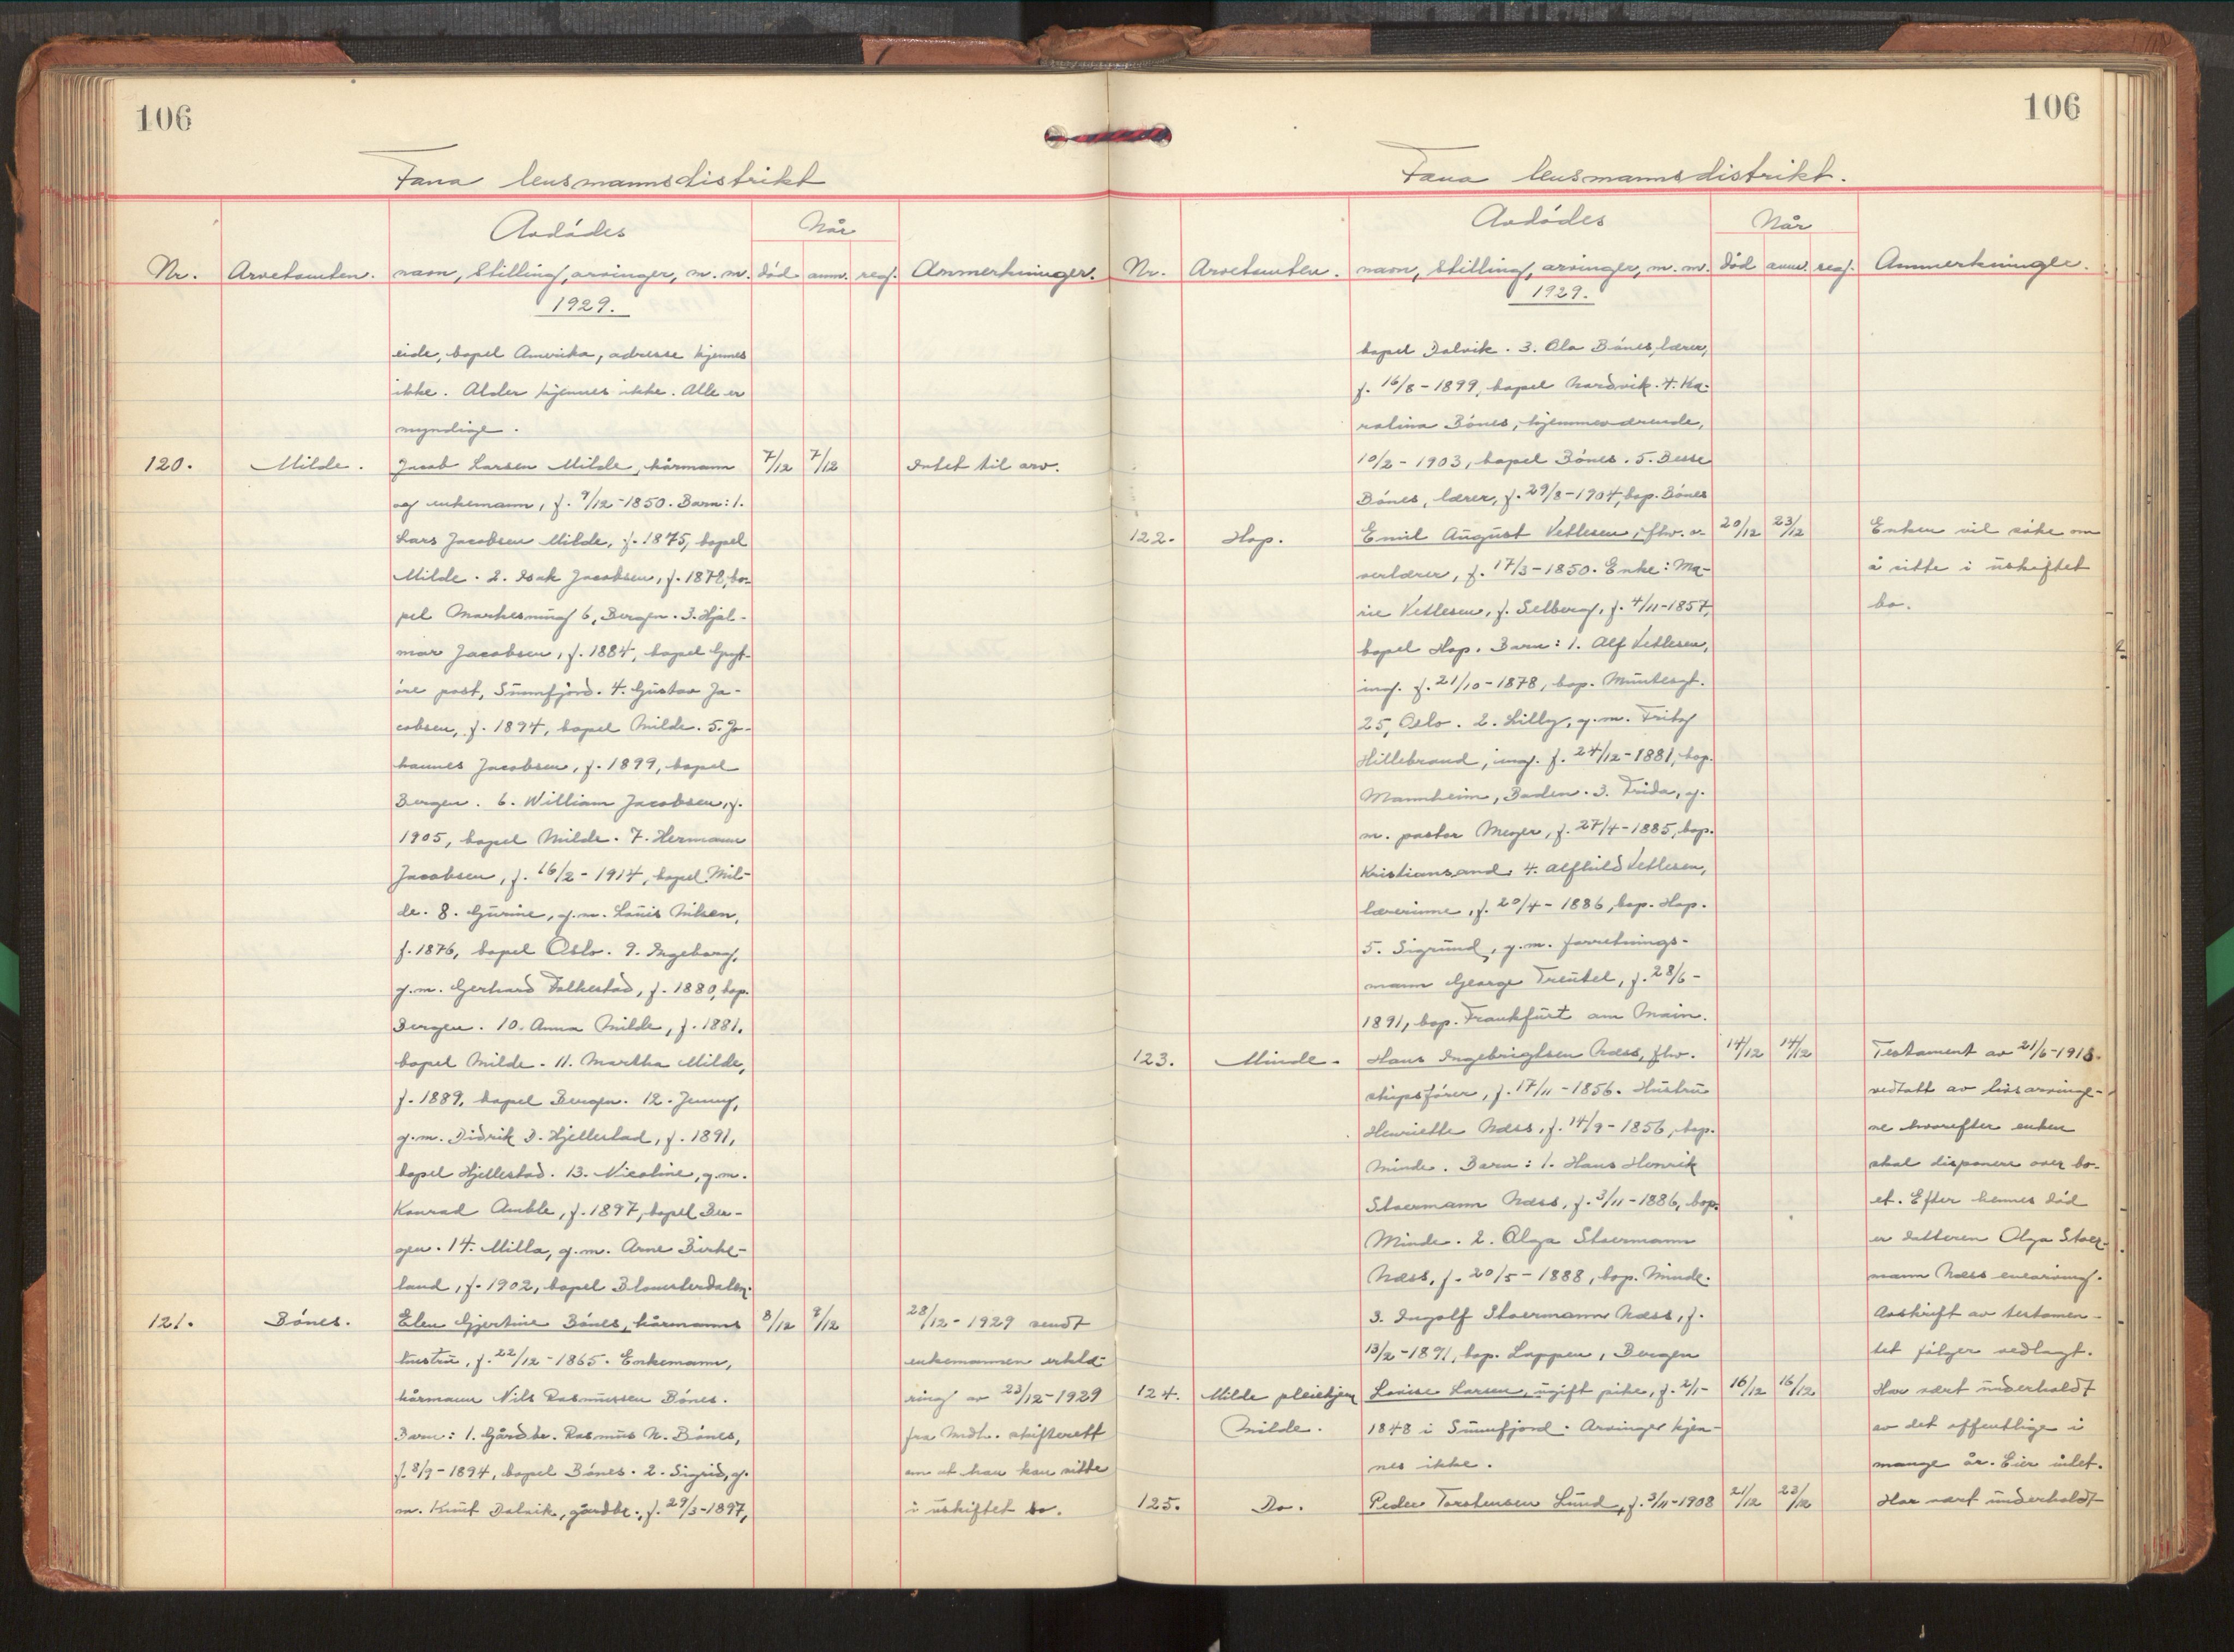 106
Fana lensmannsdistrikt
Avdødes
Når
Nr. Arvetomten. navn, stilling, arvinger, m. m. død anm. reg. Anmerkninger.
1929.
eide, bopel Amerika, adresse kjennes
ikke. Alder kjennes ikke. Alle er
myndige.
120. Milde. Jacob Larsen Milde, kårmann 7/12 7/12 Intet til arv.
og enkemann, f. 9/12-1850. Barn: 1.
Lars Jacobsen Milde, f. 1875, bopel
Milde. 2. Isak Jacobsen, f. 1878, bo-
pel 6, Bergen. 3. Hjal-
mar Jacobsen, f. 1884, bopel
post, Sunnfjord. 4. Gustav Ja-
cobsen, f. 1894, bopel Milde. 5. Jo-
hannes Jacobsen, f. 1899, bopel
Bergen. 6. William Jacobsen, f.
1905, bopel Milde. 7. Hermann
Jacobsen, f. 16/2-1914, bopel Mil-
de. 8. Gurine, g.m. Louis Nilsen,
f. 1876, bopel Oslo. 9. Ingeborg,
g.m. Gerhard Falkestad, f. 1880, bop.
Bergen. 10. Anna Milde, f. 1881,
bopel Milde. 11. Martha Milde,
f. 1889, bopel Bergen. 12. Jenny,
g.m. Didrik D. Hjellestad, f. 1891,
bopel Hjellestad. 13. Nicoline, g.m.
Konrad Amble, f. 1897, bopel Ber-
gen. 14. Milla, g.m. Arne Birke-
land, f. 1902, bopel Blomsterdalen.
121. Bønes. Elen Gjertine Bønes, kårmanns 8/12 9/12 28/12-1929 sendt
hustru, f. 22/12-1865. Enkemann, enkemannen erklæ-
kårmann Nils Rasmussen Bønes. ring av 23/12-1929
Barn: 1. Gårdbr. Rasmus N. Bønes, fra Mdh. skifterett
f. 8/9-1894, bopel Bønes. 2. Sigrid, g. om at han kan sitte
m. Knut Dalvik, gårdbr., f. 29/3-1897, i uskiftet bo.
106
Fana lensmannsdistrikt.
Avdødes
Når
Nr. Arvetomten. navn, stilling, arvinger, m. m. død anm. reg. Anmerkninger.
1929.
bopel Dalvik. 3. Ola Bønes, lærer,
f. 16/8-1899, bopel Nardvik. 4. Ka-
ralina Bønes, hjemmeværende,
10/2-1903, bopel Bønes. 5. Besse
Bønes, lærer, f. 29/8-1904, bop. Bønes
122. Hop. Emil August Vetlesen, fhv. o- 20/12 23/12 Enken vil søke om
verlærer, f. 17/3-1850. Enke: Ma- å sitte i uskiftet
rie Vetlesen, f. Selberg, f. 4/11-1857, bo.
bopel Hop. Barn: 1. Alf Vetlesen,
ing. f. 21/10-1878, bop. Muntesgt.
25, Oslo. 2. Lilly, g.m. Fritz
Hillebrand, ing. f. 24/12-1881, bop.
Mannheim, Baden. 3. Frida, g.
m. pastor Meyer, f. 27/4-1885, bop.
Kristiansand. 4. Alfhild Vetlesen,
lærerinne, f. 20/4-1886, bop. Hop.
5. Sigrund, g.m. forretnings-
mann George Treutel, f. 28/6-
1891, bop. Frankfurt am Main.
123. Minde. Hans Ingebrigtsen Næss, fhv. 14/12 14/12 Testament av 21/6-1918
skipsfører, f. 17/11-1856. Hustru vedtatt av livsarvinge-
Henriette Næss, f. 14/9-1856, bop. ne hvorefter enken
Minde. Barn: 1. Hans Henrik skal disponere over bo-
Stoermann Næss, f. 3/11-1886, bop. et. Efter hennes død
Minde. 2. Olga Stoermann er datteren Olga Stoer-
Næss, f. 20/5-1888, bop. Minde. mann Næss enearving.
3. Ingolf Stoermann Næss, f. Avskrift av testamen-
13/2-1891, bop. Loppen, Bergen tet følger vedlagt.
124. Milde pleiehjem Lovise Larsen, ugift pike, f. 2/1- 16/12 16/12 Har vært underholdt
Milde. 1848 i Sunnfjord. Arvinger kjen- av det offentlige i
nes ikke. mange år. Eier intet.
125. Do. Peder Torstensen Lund, f. 3/11-1908 21/12 23/12 Har vært underholdt